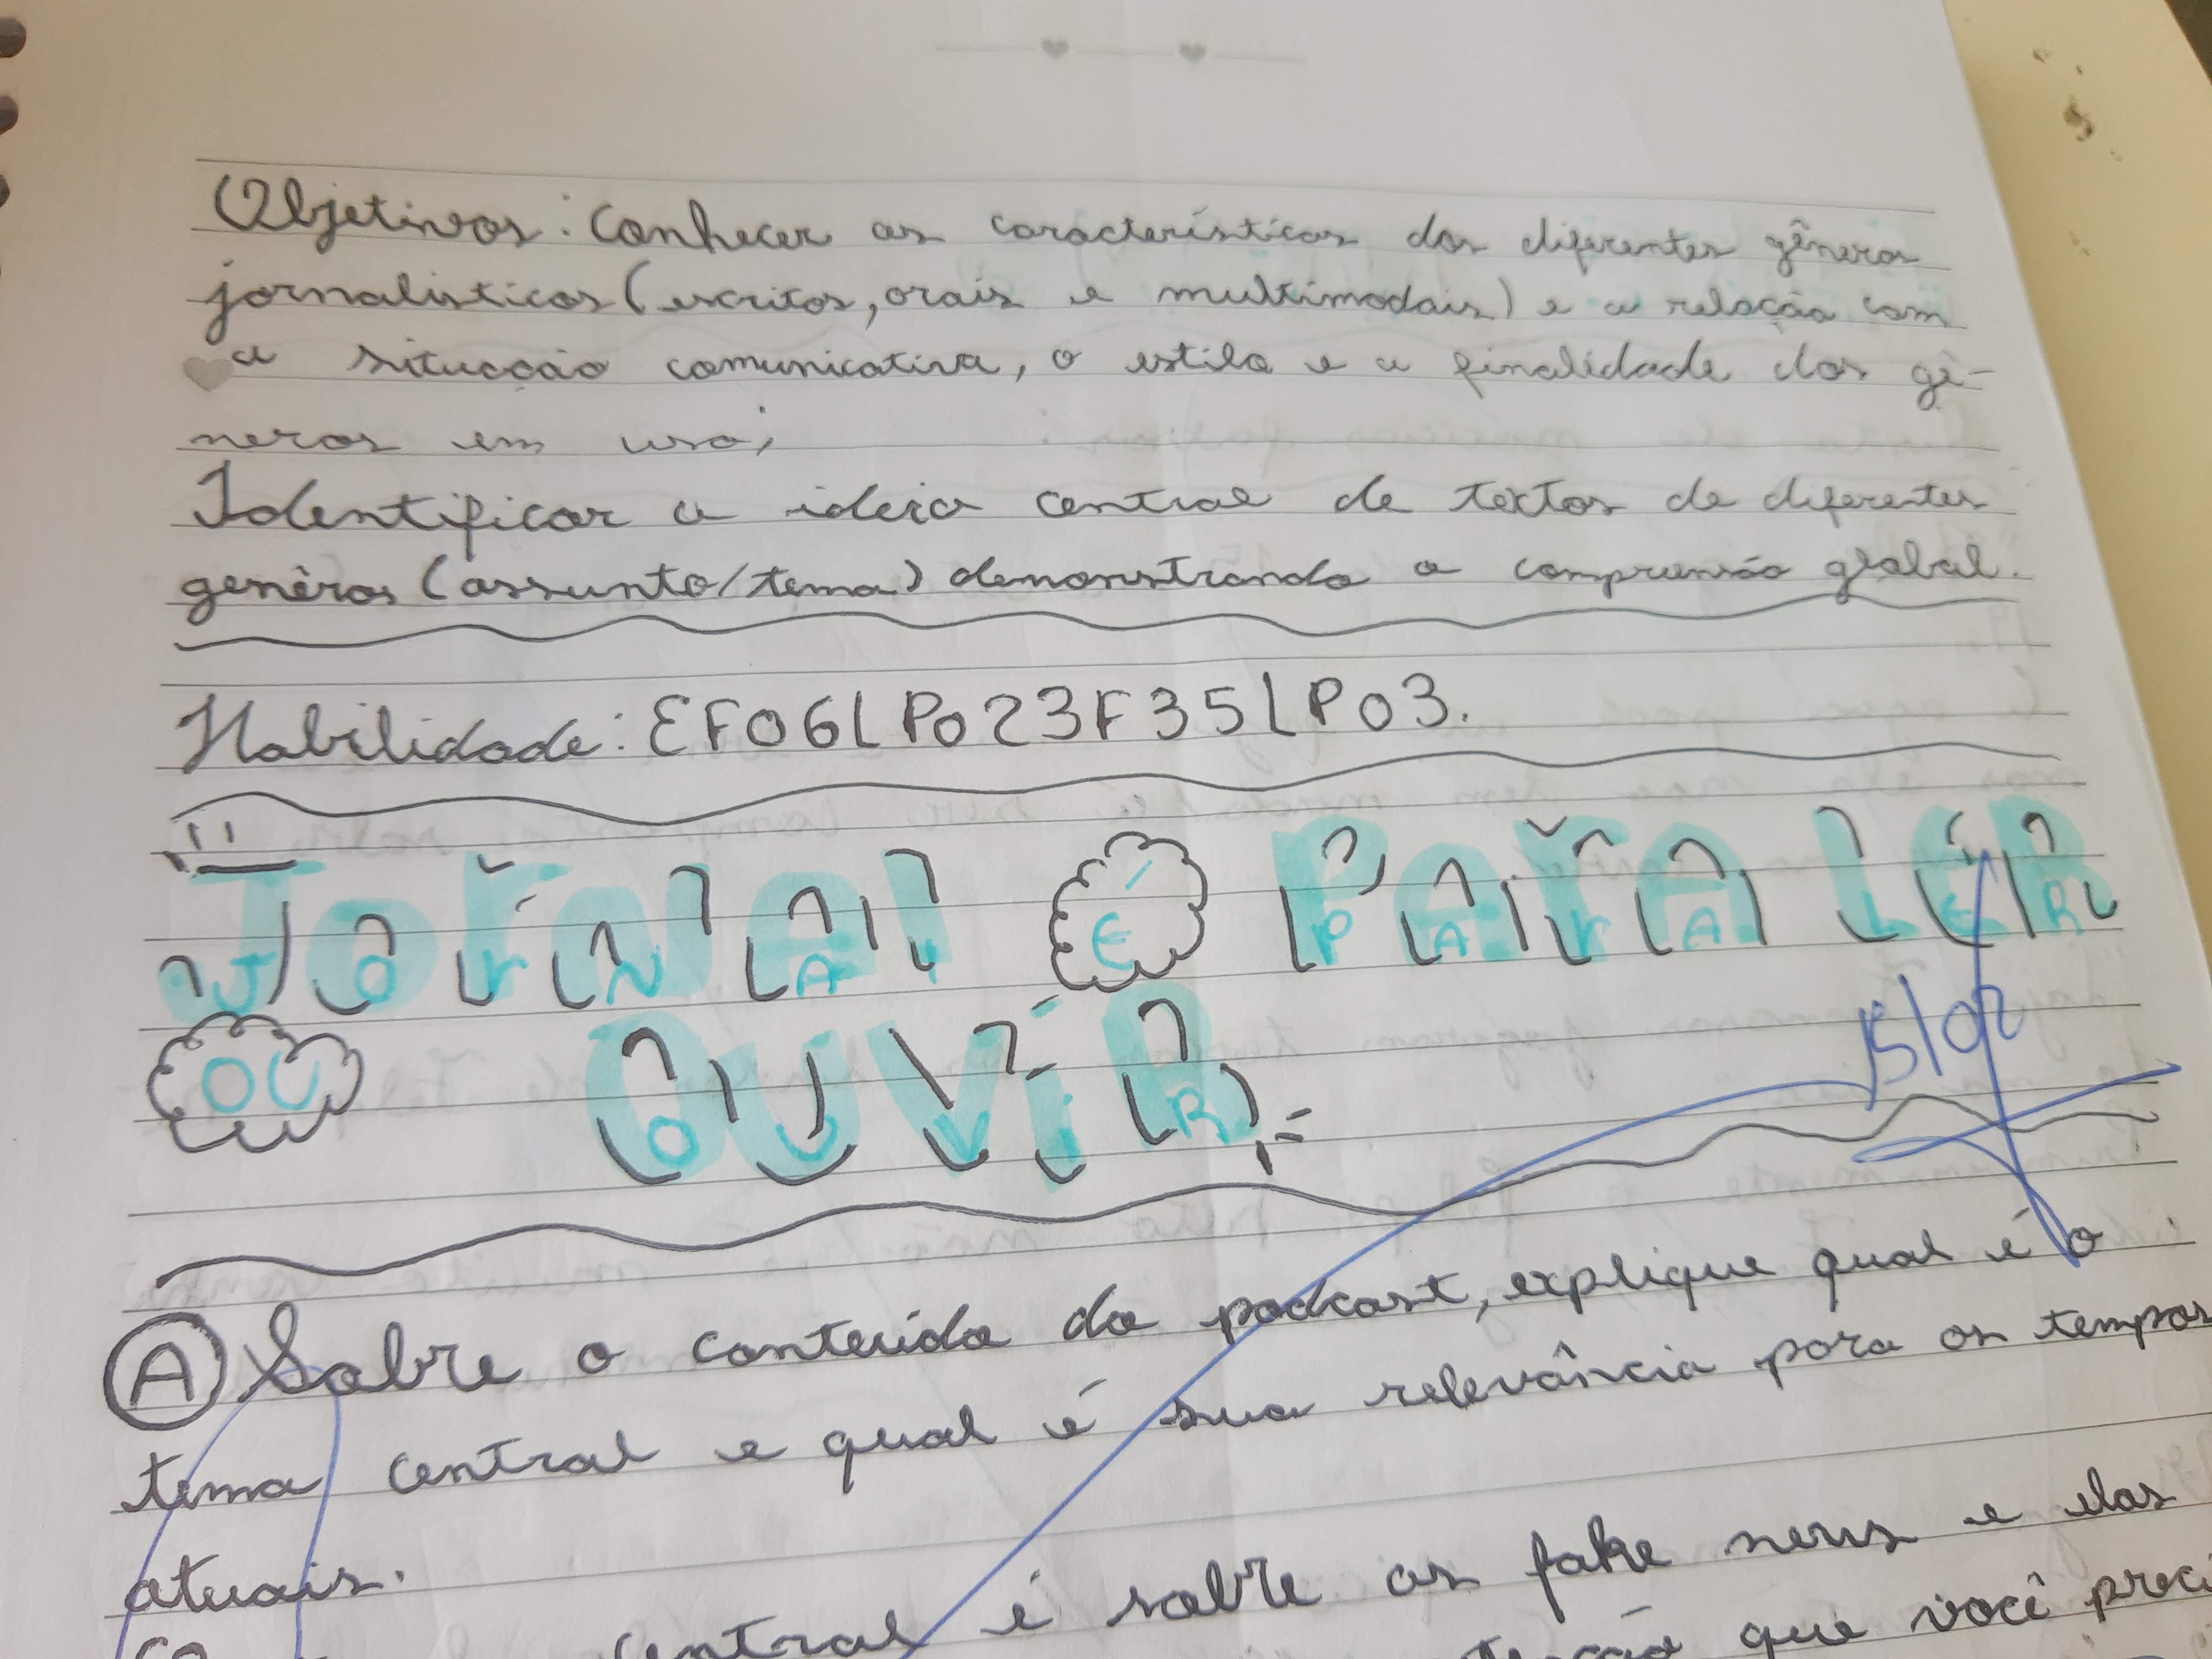 Objetivos: Conhecer as características dos diferentes gêneros
jornalisticos (escritos, orais e multimodais) e a relação com
a situação comunicativa, o estilo e a finalidade dos gê-
neros em uso;
Identificar a ideia central de textos de diferentes
genêros (assunto/tema) demonstrando a compreensão global.
Habilidade: EF06LP023F35LP03.
JOrNAl É PArA LER
OU OUViR
15/02
A Sobre o conteúdo do podcast, explique qual é o
tema central e qual é sua relevância para os tempos
atuais.
central é sobre as fake news e elas
que você preci